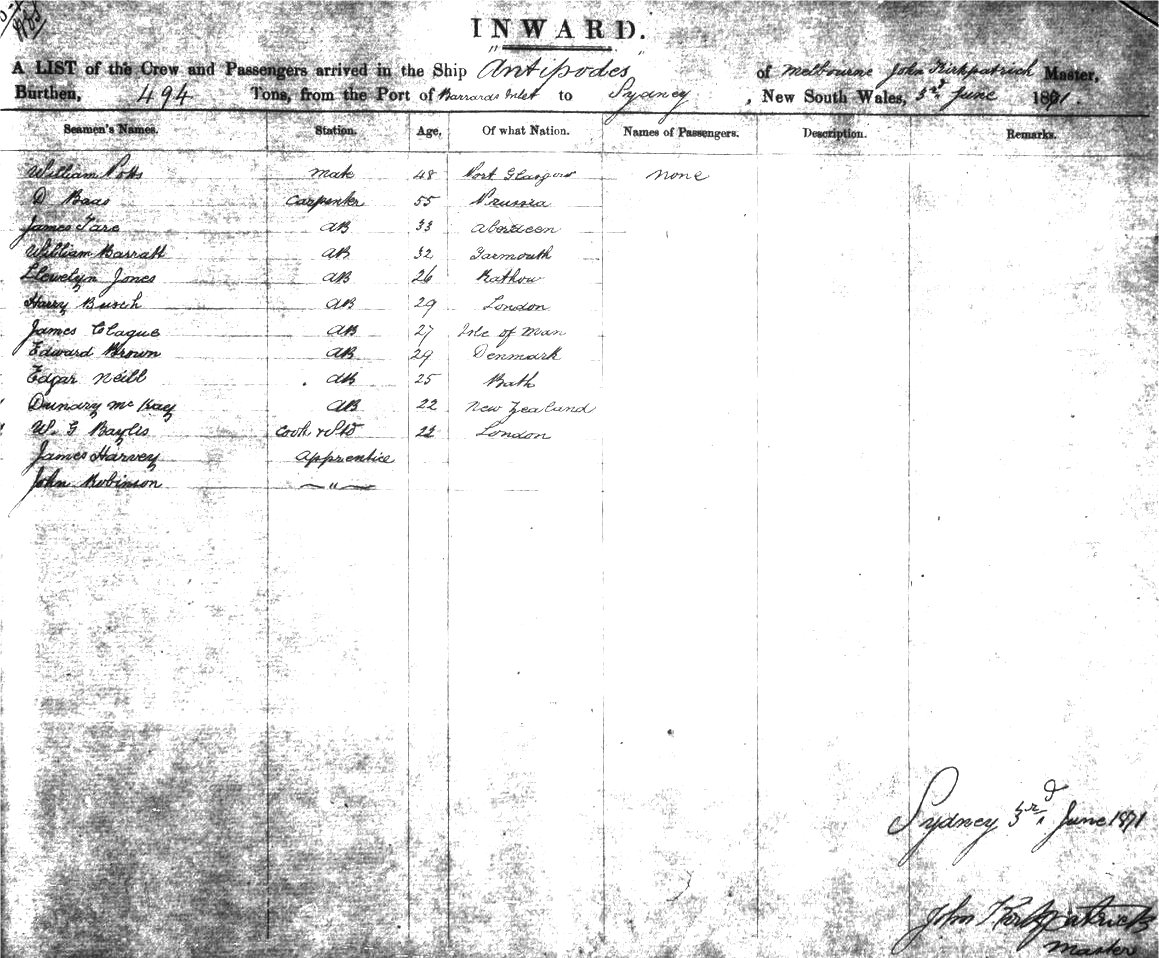 INWARD.
A LIST of the Crew and Passengers arrived in the Ship Antipodes of Melbourne John Kirkpatrick Master,
Burthen, 494 Tons, from the Port of Barrards Inlet to Sydney, New South Wales, 3rd June 1871.
Seamen's Names. Station. Age. Of what Nation. Names of Passengers. Description. Remarks.
William Potts Mate 48 Port Glasgow none
D Baas Carpenter 55 Prussia
James Tare AB 33 Aberdeen
William Barratt AB 32 Yarmouth
Llewelyn Jones AB 26
Harry Busch AB 29 London
James Clague AB 27 Isle of Man
Edward Brown AB 29 Denmark
Edgar Neill AB 25 Bath
Mc Kay AB 22 New Zealand
W. G Baylis Cook & Std 22 London
James Harvey Apprentice
John Robinson "
Sydney 3rd June 1871
John Kirkpatrick
Master